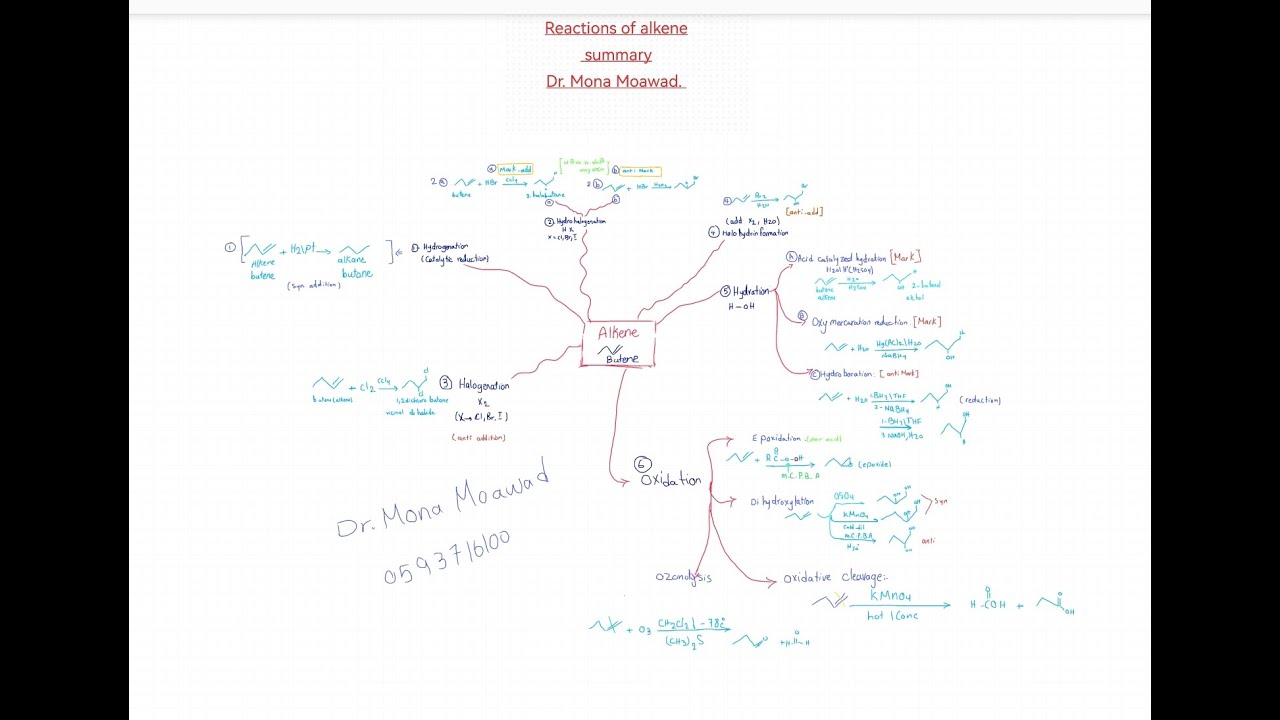 Reactions of alkene
summary
Dr. Mona Moawad.
Alkene
Butene
① Hydrogenation
(Catalytic reduction)
①
+ H2\Pt →
Alkene
butene
alkane
butane
(syn addition)
② Hydrohalogenation
H X
X = Cl, Br, I
ⓐ Mark. add
2 ⓐ + HBr CCl4
butene
2. halobutane
ⓑ anti Mark
2 ⓑ + HBr H2O2
③ Halogenation
X2
(X → Cl, Br, I)
(anti addition)
+ Cl2 CCl4
butene (alkene)
1,2 dichloro butane
vicinal dihalide
④ Br2
H2O
[anti-add]
(add X2, H2O)
④ Halohydrin formation
⑤ Hydration
H - OH
Ⓐ Acid catalyzed hydration [Mark]
H2O\H+(H2SO4)
H2O
H2SO4
butene
alkene
OH
2-butanol
Ⓑ
Oxymercuration reduction: [Mark]
+ H2O Hg(AC)2\H2O
NaBH4
OH
Ⓒ Hydroboration: [anti Mark]
+ H2O 1.BH3\THF
2-NaBH4
(reduction)
1-BH3\THF
⑥
Oxidation
Epoxidation
R C-O-OH
m.C.P.B.A
(epoxide)
Dihydroxylation
OsO4
KMnO4
Cold-dil
m.C.P.B.A
H3O+
syn
anti
Ozonolysis
+ O3 CH2Cl2 \ -78c°
(CH3)2S
Oxidative cleavage:-
KMnO4
hot \ Conc
H-COH + OH
Dr. Mona Moawad
0593716100